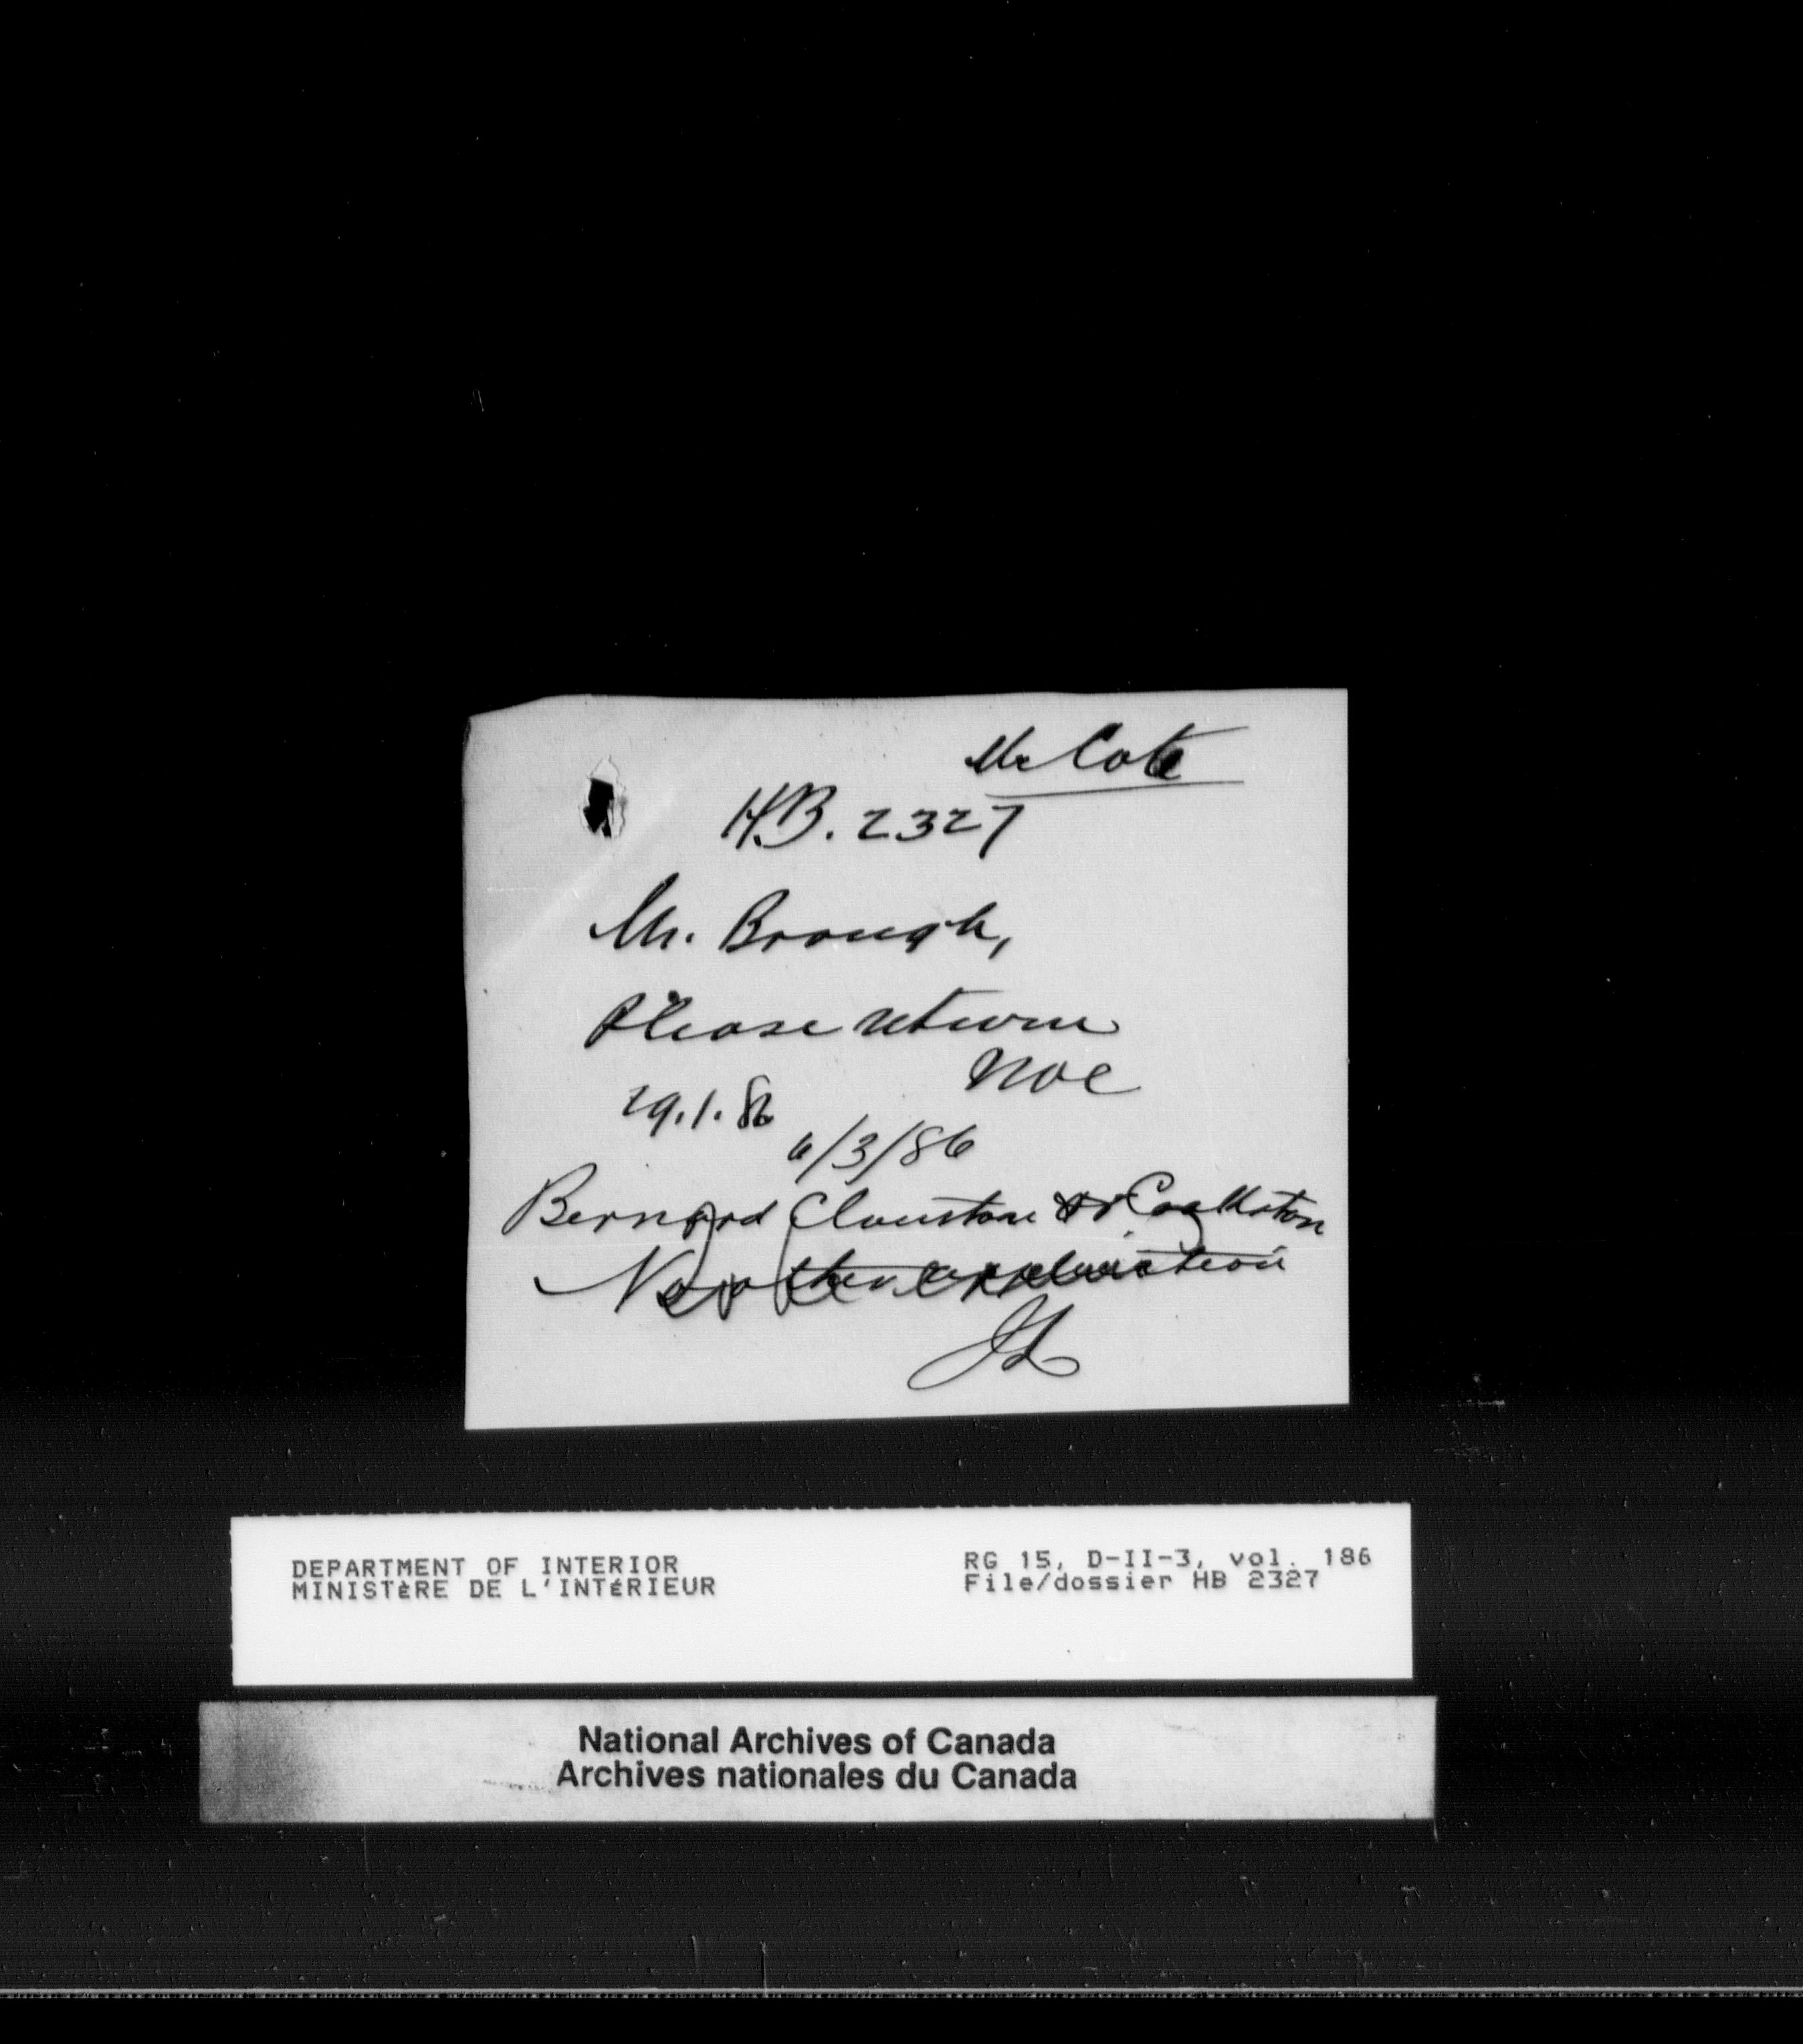 Mr Cote
H.B. 2327
Mr. Brough,
Please return
NOC
29.1.86
6/3/86
Bernard Clouston or Coulston
No other application
DEPARTMENT OF INTERIOR
MINISTÈRE DE L'INTÉRIEUR
RG 15, D-II-3, vol. 186
File/dossier HB 2327
National Archives of Canada
Archives nationales du Canada